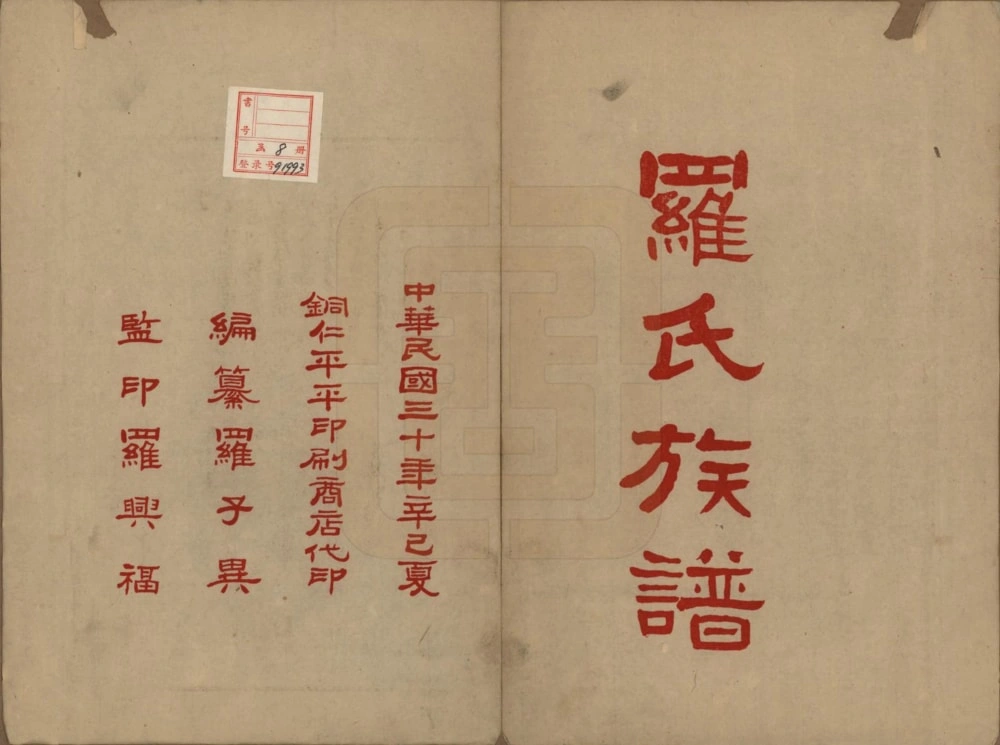 羅氏族譜
中華民國三十年辛巳夏
銅仁平平印刷商店代印
編纂羅子異
監印羅興福
書号
函 8 册
登录号 91993